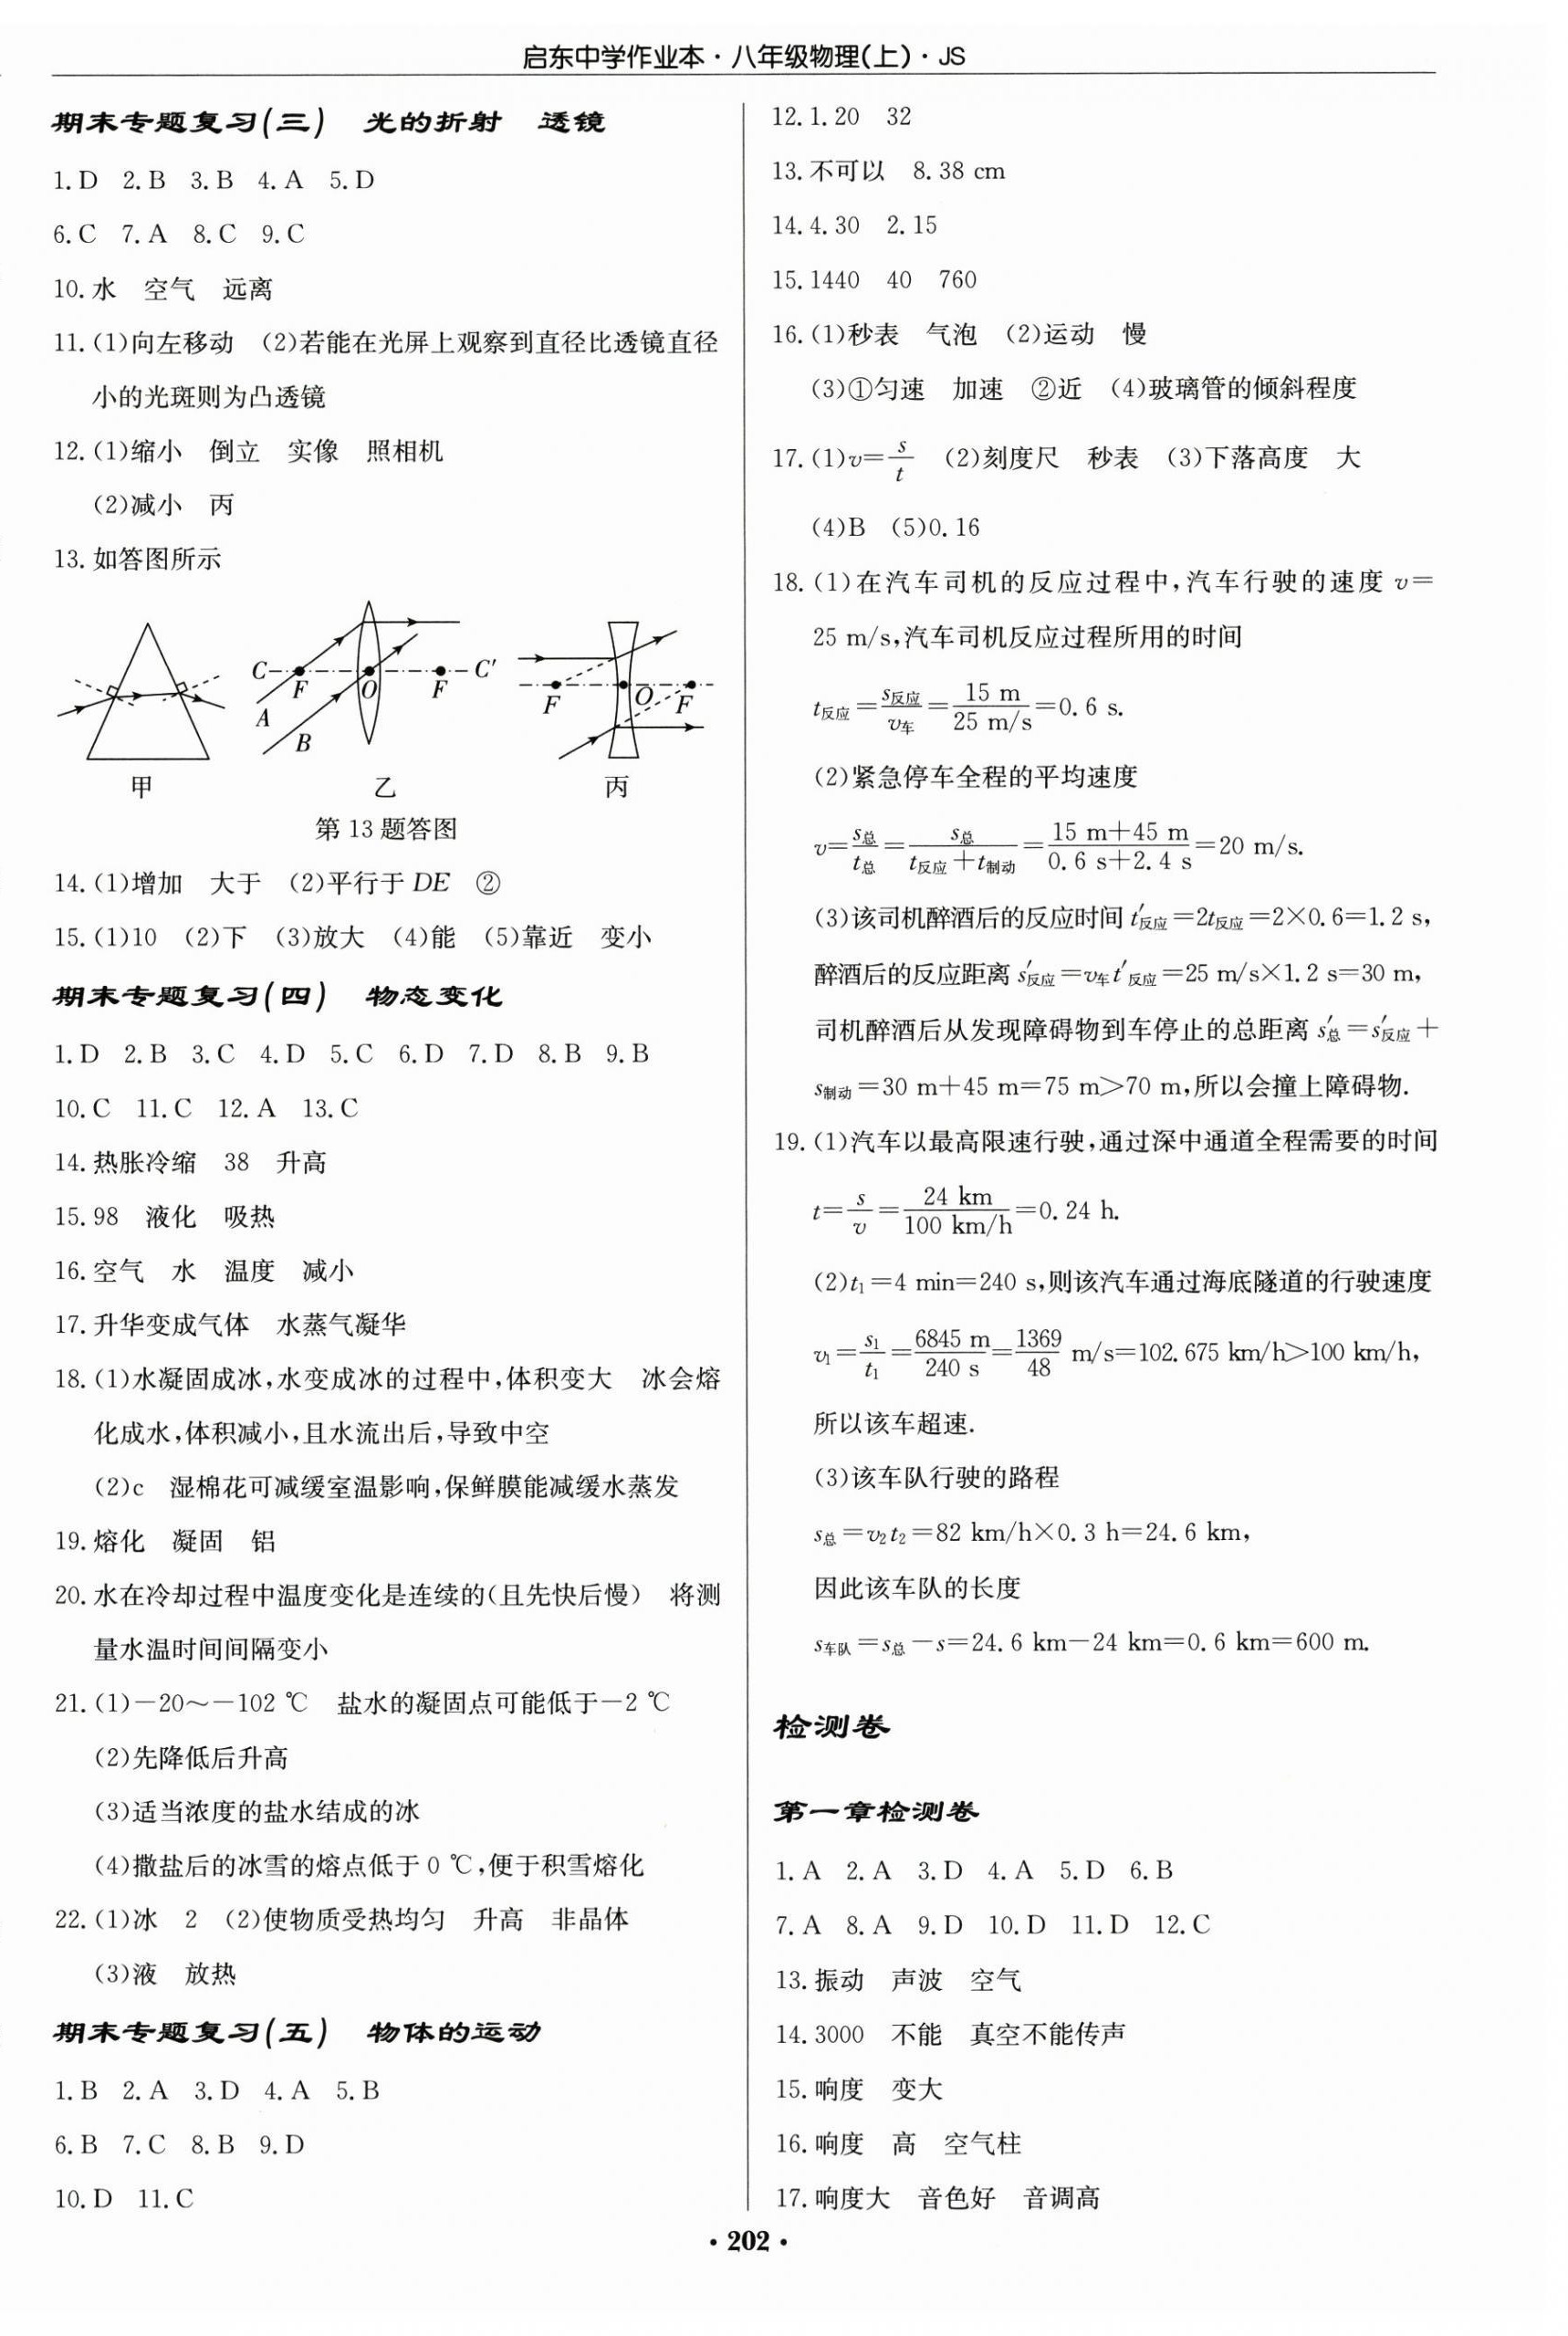 启东中学作业本·八年级物理(上)·JS
期末专题复习(三) 光的折射 透镜
1.D 2.B 3.B 4.A 5.D
6.C 7.A 8.C 9.C
10.水 空气 远离
11.(1)向左移动 (2)若能在光屏上观察到直径比透镜直径
小的光斑则为凸透镜
12.(1)缩小 倒立 实像 照相机
(2)减小 丙
13.如答图所示
C F O F C′ A B
F O F
甲 乙 丙
第13题答图
14.(1)增加 大于 (2)平行于DE ②
15.(1)10 (2)下 (3)放大 (4)能 (5)靠近 变小
期末专题复习(四) 物态变化
1.D 2.B 3.C 4.D 5.C 6.D 7.D 8.B 9.B
10.C 11.C 12.A 13.C
14.热胀冷缩 38 升高
15.98 液化 吸热
16.空气 水 温度 减小
17.升华变成气体 水蒸气凝华
18.(1)水凝固成冰,水变成冰的过程中,体积变大 冰会熔
化成水,体积减小,且水流出后,导致中空
(2)c 湿棉花可减缓室温影响,保鲜膜能减缓水蒸发
19.熔化 凝固 铝
20.水在冷却过程中温度变化是连续的(且先快后慢) 将测
量水温时间间隔变小
21.(1)−20～−102 ℃ 盐水的凝固点可能低于−2 ℃
(2)先降低后升高
(3)适当浓度的盐水结成的冰
(4)撒盐后的冰雪的熔点低于0 ℃,便于积雪熔化
22.(1)冰 2 (2)使物质受热均匀 升高 非晶体
(3)液 放热
期末专题复习(五) 物体的运动
1.B 2.A 3.D 4.A 5.B
6.B 7.C 8.B 9.D
10.D 11.C
12.1.20 32
13.不可以 8.38 cm
14.4.30 2.15
15.1440 40 760
16.(1)秒表 气泡 (2)运动 慢
(3)①匀速 加速 ②近 (4)玻璃管的倾斜程度
17.(1)v=s/t (2)刻度尺 秒表 (3)下落高度 大
(4)B (5)0.16
18.(1)在汽车司机的反应过程中,汽车行驶的速度 v=
25 m/s,汽车司机反应过程所用的时间
t反应=s反应/v车=15 m/25 m/s=0.6 s.
(2)紧急停车全程的平均速度
v=s总/t总=s总/(t反应+t制动)=(15 m+45 m)/(0.6 s+2.4 s)=20 m/s.
(3)该司机醉酒后的反应时间t′反应=2t反应=2×0.6=1.2 s,
醉酒后的反应距离s′反应=v车t′反应=25 m/s×1.2 s=30 m,
司机醉酒后从发现障碍物到车停止的总距离s′总=s′反应+
s制动=30 m+45 m=75 m>70 m,所以会撞上障碍物.
19.(1)汽车以最高限速行驶,通过深中通道全程需要的时间
t=s/v=24 km/100 km/h=0.24 h.
(2)t₁=4 min=240 s,则该汽车通过海底隧道的行驶速度
v₁=s₁/t₁=6845 m/240 s=1369/48 m/s=102.675 km/h>100 km/h,
所以该车超速.
(3)该车队行驶的路程
s总=v₂t₂=82 km/h×0.3 h=24.6 km,
因此该车队的长度
s车队=s总−s=24.6 km−24 km=0.6 km=600 m.
检测卷
第一章检测卷
1.A 2.A 3.D 4.A 5.D 6.B
7.A 8.A 9.D 10.D 11.D 12.C
13.振动 声波 空气
14.3000 不能 真空不能传声
15.响度 变大
16.响度 高 空气柱
17.响度大 音色好 音调高
·202·